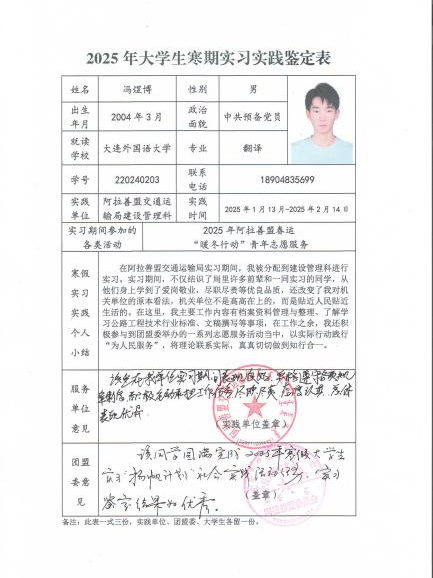 2025年大学生寒期实习实践鉴定表
姓名 冯煜博 性别 男
出生年月 2004年3月 政治面貌 中共预备党员
就读学校 大连外国语大学 专业 翻译
学号 220240203 联系电话 18904835699
实践单位 阿拉善盟交通运输局建设管理科 实践时间 2025年1月13日-2025年2月14日
实习期间参加的各类活动 2025年阿拉善盟春运“暖冬行动”青年志愿服务
寒假实习实践个人小结
在阿拉善盟交通运输局实习期间，我被分配到建设管理科进行
实习。实习期间，不仅结识了周里许多前辈和一同实习的同学，也
从他们身上学到了爱岗敬业、尽职尽责等优良品质，还改变了我对机
关单位的原本看法，机关单位不是高高在上的，而是贴近人民贴近
生活的。在这里，我主要工作内容有档案资料管理与整理、了解学
习公路工程技术行业标准、文稿撰写等事项，在工作之余，我还积
极参与到团盟委举办的一系列志愿服务活动当中，以实际行动践行
“为人民服务”，将理论联系实际，真真切切做到知行合一。
服务单位意见
该生在我单位实习期间表现良好，
积极主动承担工作任务
表现优异
（实践单位盖章）
团盟委意见
该同学圆满完成2025年寒假大学生
实习“扬帆计划”社会实践活动任务，实习
鉴定结果为优秀。
（盖章）
备注：此表一式三份，实践单位、团盟委、大学生各留一份。